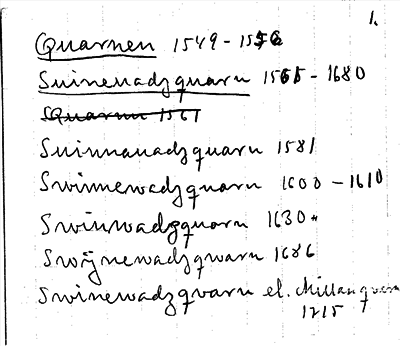 1.
Quarnen 1549-1556
Suinenadzquarn 1565-1680
SQuarnn 1561
Suinnanadzquarn 1581
Swinnewadzquarn 1600-1610
Swinwadzquarn 1630
Swÿnewadzqwarn 1686
Swinewadzqvarn el. Millanqvarn
1715